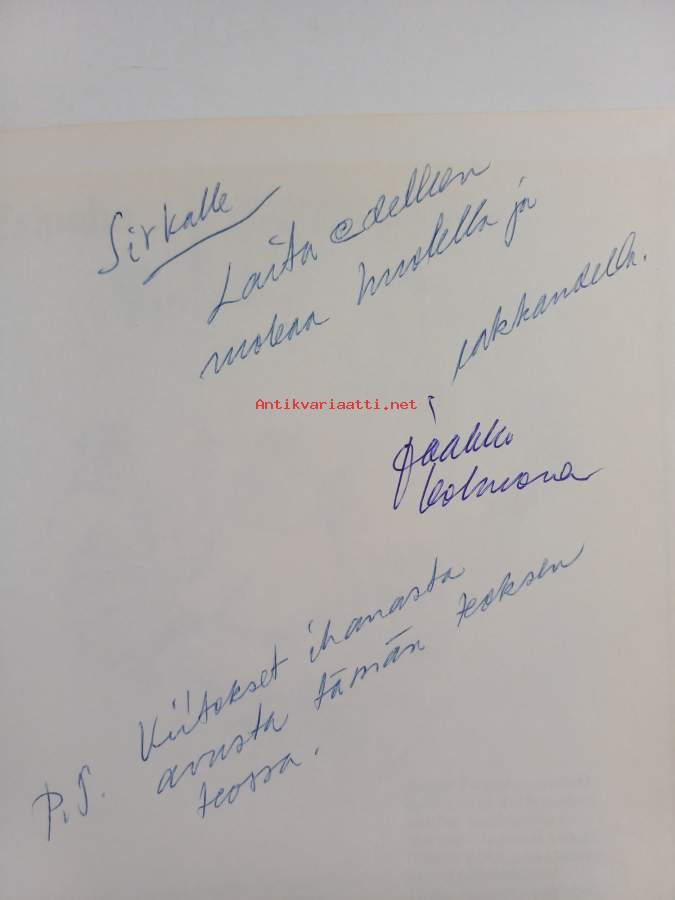 Sirkalle
Laita edelleen
ruokaa huolella ja
rakkaudella.
Antikvariaatti.net
Jaakko
Kolmonen
P.S. Kiitokset ihanasta
avusta tämän teoksen
teossa.